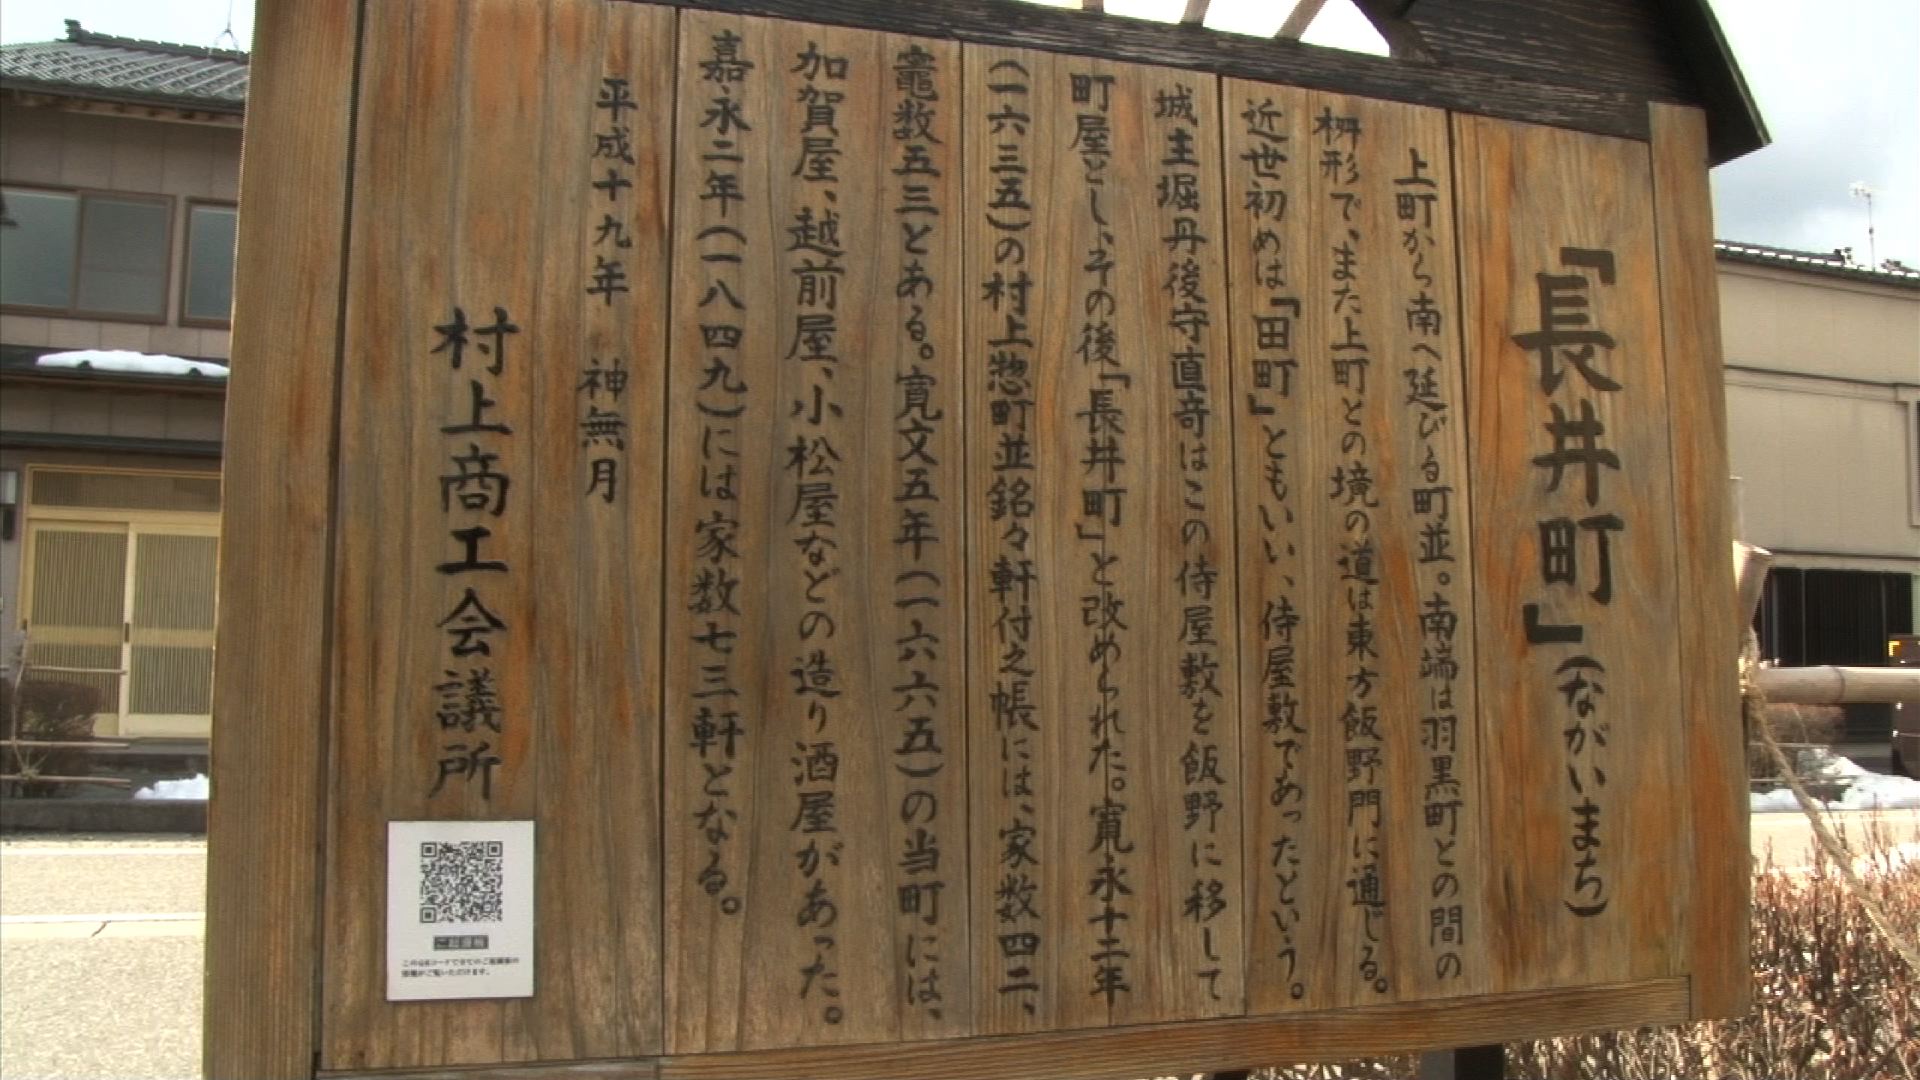 「長井町」(ながいまち)
上町から南へ延びる町並。南端は羽黒町との間の
桝形で、また上町との境の道は東方飯野門に通じる。
近世初めは「田町」ともいい、侍屋敷であったという。
城主堀丹後守直竒はこの侍屋敷を飯野に移して
町屋とし、その後「長井町」と改められた。寛永十二年
(一六三五)の村上惣町並銘々軒付之帳には、家数四二、
竈数五三とある。寛文五年(一六六五)の当町には、
加賀屋、越前屋、小松屋などの造り酒屋があった。
嘉永二年(一八四九)には家数七三軒となる。
平成十九年 神無月
村上商工会議所